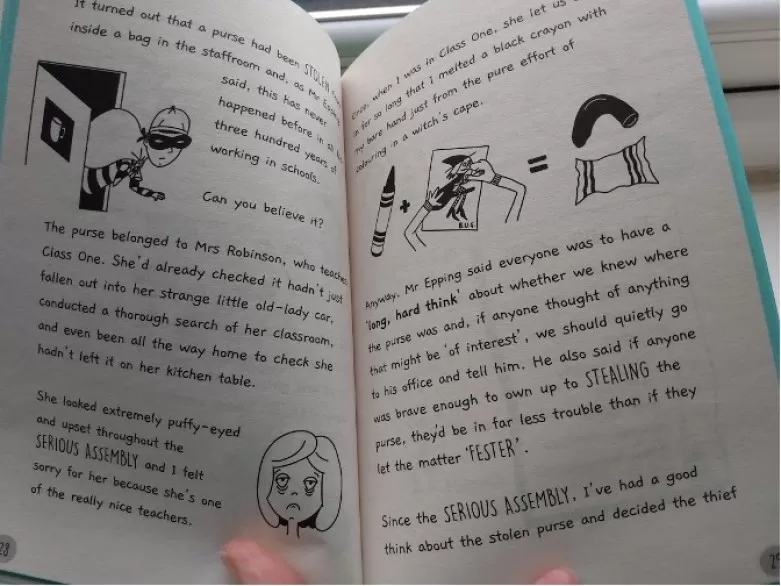 It turned out that a purse had been STOLEN from
inside a bag in the staffroom and, as Mr Epping
said, this has never
happened before in all his
three hundred years of
working in schools.
Can you believe it?
The purse belonged to Mrs Robinson, who teaches
Class One. She'd already checked it hadn't just
fallen out into her strange little old-lady car,
conducted a thorough search of her classroom,
and even been all the way home to check she
hadn't left it on her kitchen table.
She looked extremely puffy-eyed
and upset throughout the
SERIOUS ASSEMBLY and I felt
sorry for her because she's one
of the really nice teachers.
28
Once, when I was in Class One, she let us
in for so long that I melted a black crayon with
my bare hand just from the pure effort of
colouring in a witch's cape.
+
=
Anyway, Mr Epping said everyone was to have a
'long, hard think' about whether we knew where
the purse was and, if anyone thought of anything
that might be 'of interest', we should quietly go
to his office and tell him. He also said if anyone
was brave enough to own up to STEALING the
purse, they'd be in far less trouble than if they
let the matter 'FESTER'.
Since the SERIOUS ASSEMBLY, I've had a good
think about the stolen purse and decided the thief